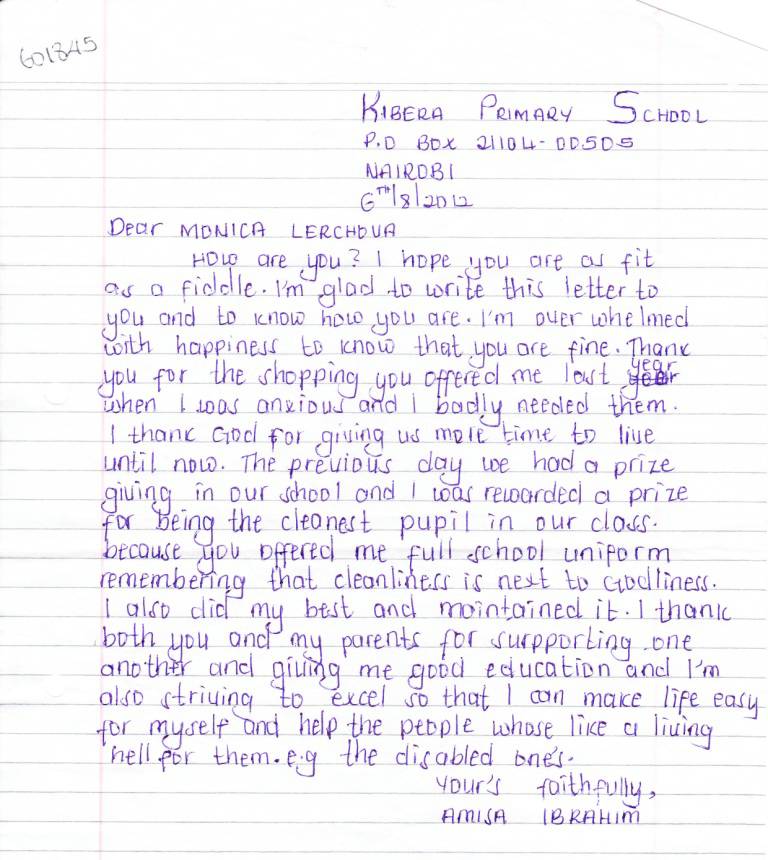 601845
KIBERA PRIMARY SCHOOL
P.O BOX 21104-00505
NAIROBI
6TH/8/2012
Dear MONICA LERCHOVA
How are you? I hope you are as fit
as a fiddle. I'm glad to write this letter to
you and to know how you are. I'm over whelmed
with happiness to know that you are fine. Thank
you for the shopping you offered me last year
when I was anxious and I badly needed them.
I thank God for giving us more time to live
until now. The previous day we had a prize
giving in our school and I was rewarded a prize
for being the cleanest pupil in our class.
because you offered me full school uniform
remembering that cleanliness is next to Godliness.
I also did my best and maintained it. I thank
both you and my parents for surpporting one
another and giving me good education and I'm
also striving to excel so that I can make life easy
for myself and help the people whose like a living
hell for them. e.g the disabled one's.
Your's faithfully,
AMISA IBRAHIM